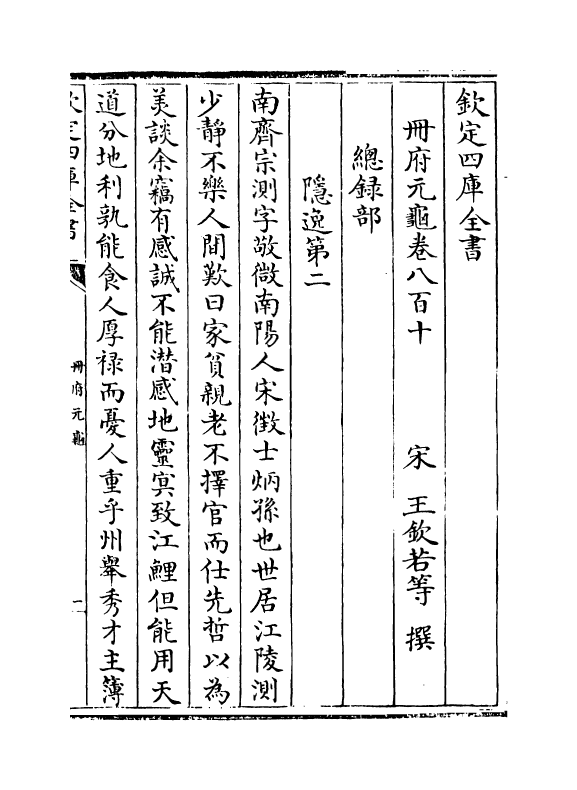 欽定四庫全書
冊府元龜卷八百十
宋 王欽若等 撰
總録部
隱逸第二
南齊宗測字敬微南陽人宋徴士炳孫也世居江陵測
少静不樂人間歎曰家貧親老不擇官而仕先哲以為
美談余竊有感誠不能潜感地靈冥致江鯉但能用天
道分地利孰能食人厚禄而憂人重乎州舉秀才主簿
欽定四庫全書
冊府元龜